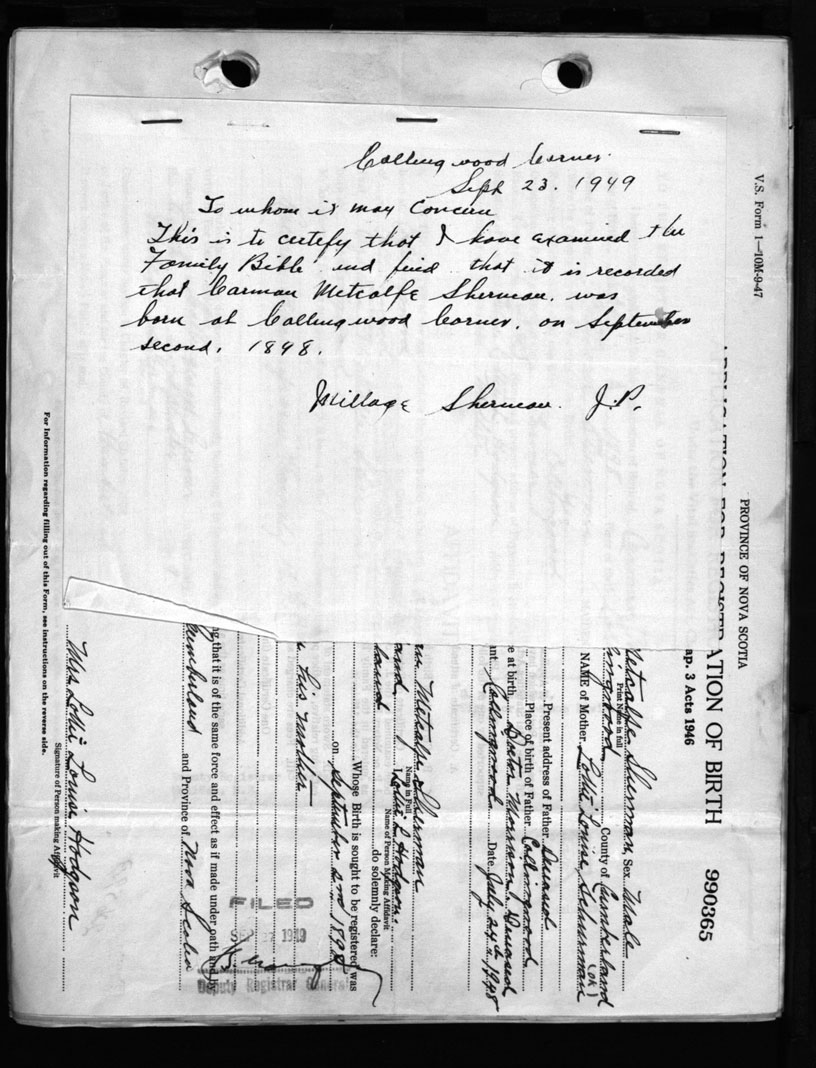 Collingwood Corner
Sept 23. 1949
To whom it may Concern
This is to certify that I have examined the
Family Bible and find that it is recorded
that Carman Metcalfe Sherman. was
born at Collingwood Corner. on September
second. 1898.
Millage Sherman. J.P.
V.S. Form 1—10M-9-47
PROVINCE OF NOVA SCOTIA
APPLICATION FOR REGISTRATION OF BIRTH 990365
ap. 3 Acts 1946
Metcalfe Sherman Sex Male
Print Name in full
County of Cumberland
(OK)
NAME of Mother Lottie Louise Schurman
Present address of Father Deceased
Place of birth of Father Collingwood
e at birth Doctor Deceased
nt. Collingwood Date July 24th 1948
Metcalfe Sherman
Name in Full
Lottie L Hodgson
Name of Person Making Affidavit
do solemnly declare:
Whose Birth is sought to be registered was
on September 2nd 1898
his mother
ng that it is of the same force and effect as if made under oath and by
Cumberland and Province of Nova Scotia
FILED
SEP 27 1949
Deputy Registrar General
Mrs Lottie Louise Hodgson
Signature of Person making Affidavit
For Information regarding filling out of this Form, see instructions on the reverse side.